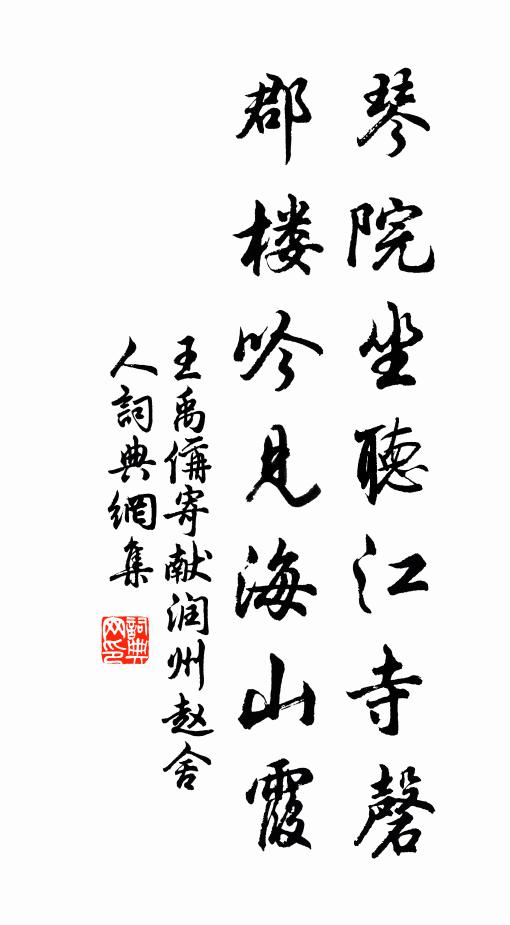 琴院坐聽江寺磬
郡楼吟见海山霞
王禹偁寄献润州赵舍
人詞典網集
詞典
网印